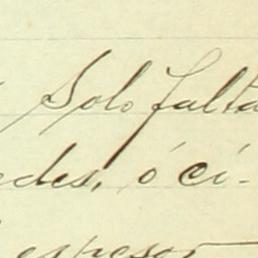 Solo falta
edes, ó ci-
espesor